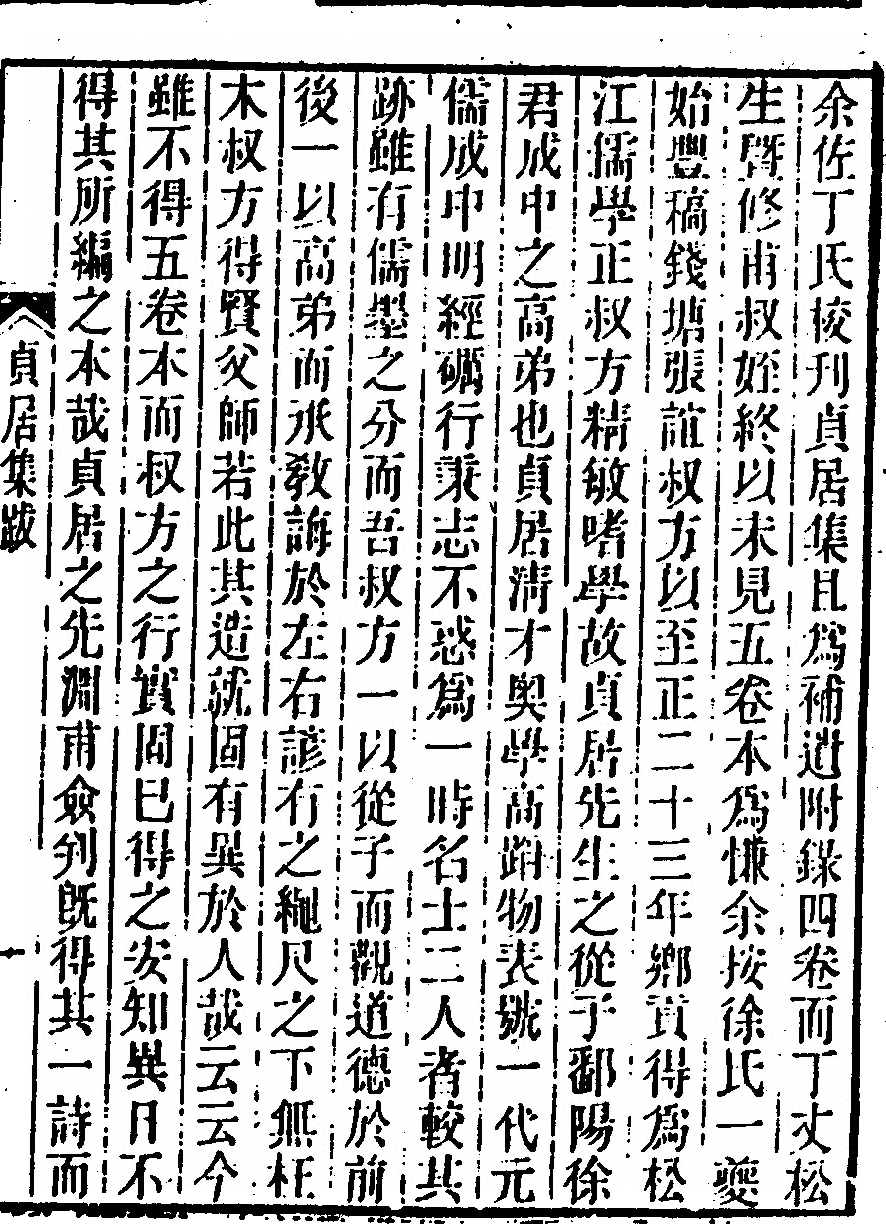 余佐丁氏校刊貞居集且爲補遺附錄四卷而丁丈松
生曁修甫叔姪終以未見五卷本爲慊余按徐氏一夔
始豐稿錢塘張誼叔方以至正二十三年鄉貢得爲松
江儒學正叔方精敏嗜學故貞居先生之從子鄱陽徐
君成中之高弟也貞居淸才奧學高蹈物表號一代元
儒成中明經礪行秉志不惑爲一時名士二人者較其
跡雖有儒墨之分而吾叔方一以從子而觀道德於前
後一以高弟而承敎誨於左右諺有之繩尺之下無枉
木叔方得賢父師若此其造就固有異於人哉云云今
雖不得五卷本而叔方之行實固已得之安知異日不
得其所編之本哉貞居之先淵甫僉判旣得其一詩而
貞居集跋
一